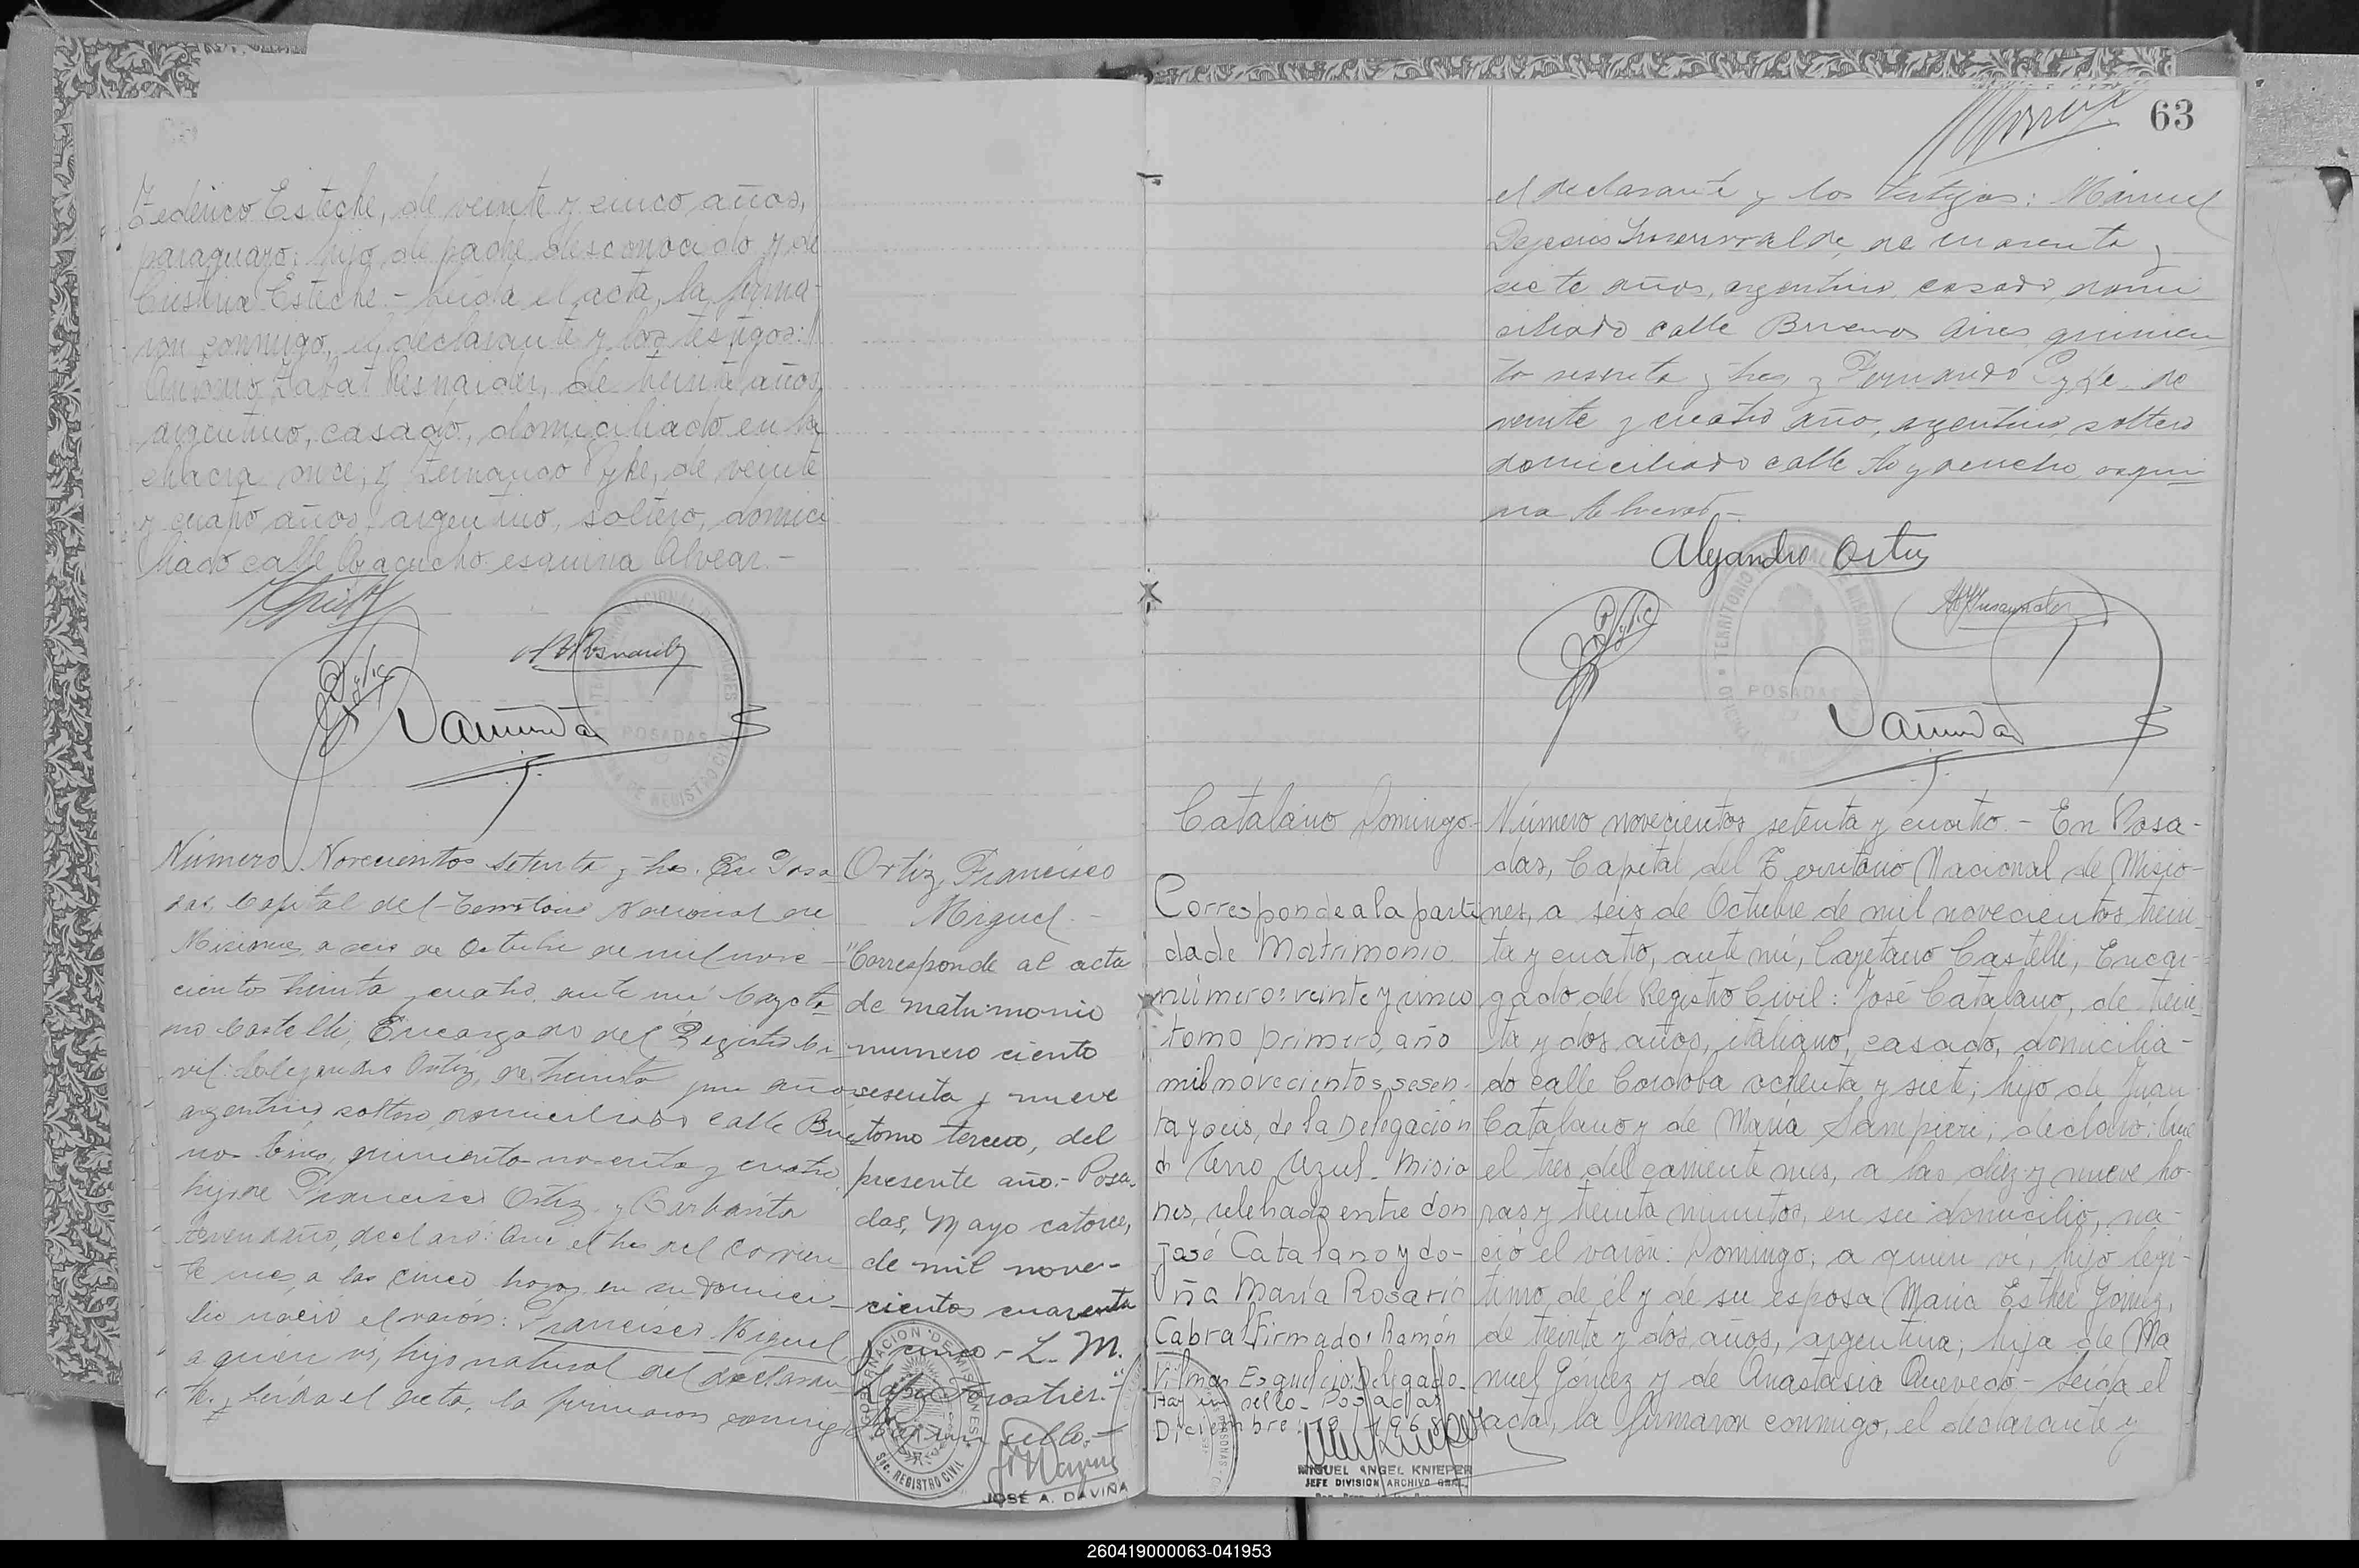 Federico Esteche, de veinte y cinco años,
paraguayo; hijo de padre desconocido y de
Cristina Esteche.- Leída el acta, la firma-
ron conmigo, el declarante y los testigos:
Antonio Resnaider, de treinta años,
argentino, casado, domiciliado en la
chacra once, y Fernando Pyke, de veinte
y cuatro años, argentino, soltero, domici
liado calle Ayacucho esquina Alvear.-
TERRITORIO NACIONAL DE MISIONES
POSADAS
OFICINA DE REGISTRO CIVIL
Número Novecientos setenta y tres. En Posa
das, Capital del Territorio Nacional de
Misiones, a seis de Octubre de mil nove
cientos treinta y cuatro, ante mí Cayeta
no Castelli, Encargado del Registro Ci
vil: Alejandro Ortiz, de treinta y un años
argentino, soltero, domiciliado calle Bue
nos Aires, quinientos noventa y cuatro,
hijo de Francisco Ortiz y
declaró: Que el tres del corrien
te mes, a las cinco horas en su domici
lio nació el varón: Francisco Miguel
a quien vi, hijo natural del declaran
te.- Leída el acta, la firmaron conmigo
Ortiz, Francisco
Miguel.-
"Corresponde al acta
de matrimonio
numero ciento
sesenta y nueve
tomo tercero, del
presente año.- Posa-
das, Mayo catorce,
de mil nove-
cientos cuarenta
y cinco.- L. M.
Hay un sello.-
GOBERNACION DE MISIONES
Sec. REGISTRO CIVIL
JOSÉ A. DAVIÑA
63
el declarante y los testigos: Manuel
de cuarenta y
siete años, argentino, casado, domi
ciliado calle Buenos Aires quinien
to sesenta y tres, y Fernando Pyke de
veinte y cuatro año, argentino, soltero
domiciliado calle Ayacucho esqui
na Alvear.-
Alejandro Ortiz
TERRITORIO NACIONAL DE MISIONES
POSADAS
Catalano Domingo.
Corresponde a la parti
da de Matrimonio
número: veinte y cinco
tomo primero, año
mil novecientos sesen-
ta y seis, de la Delegación
d Cerro Azul - Misio
nes, celebrado entre don
José Catalano y do-
ña María Rosario
Cabral Firmado: Ramón
Vilmar Delegado.
Hay un sello - Posadas
Diciembre: 19 1968
MIGUEL ANGEL KNIEPER
JEFE DIVISION ARCHIVO GRAL.
Número novecientos setenta y cuatro.- En Posa-
das, Capital del Territorio Nacional de Misio-
nes, a seis de Octubre de mil novecientos trein-
ta y cuatro, ante mí, Cayetano Castelli, Encar-
gado del Registro Civil: José Catalano, de trein-
ta y dos años, italiano, casado, domicilia-
do calle Cordoba ochenta y siete; hijo de Juan
Catalano y de María Sampieri; declaró: Que
el tres del corriente mes, a las diez y nueve ho-
ras y treinta minutos, en su domicilio, na-
ció el varón: Domingo; a quien vi, hijo legí-
timo de él y de su esposa María Esther Gómez,
de treinta y dos años, argentina; hija de Ma
nuel Gómez y de Anastasia Quevedo.- Leída el
acta, la firmaron conmigo, el declarante y
260419000063-041953